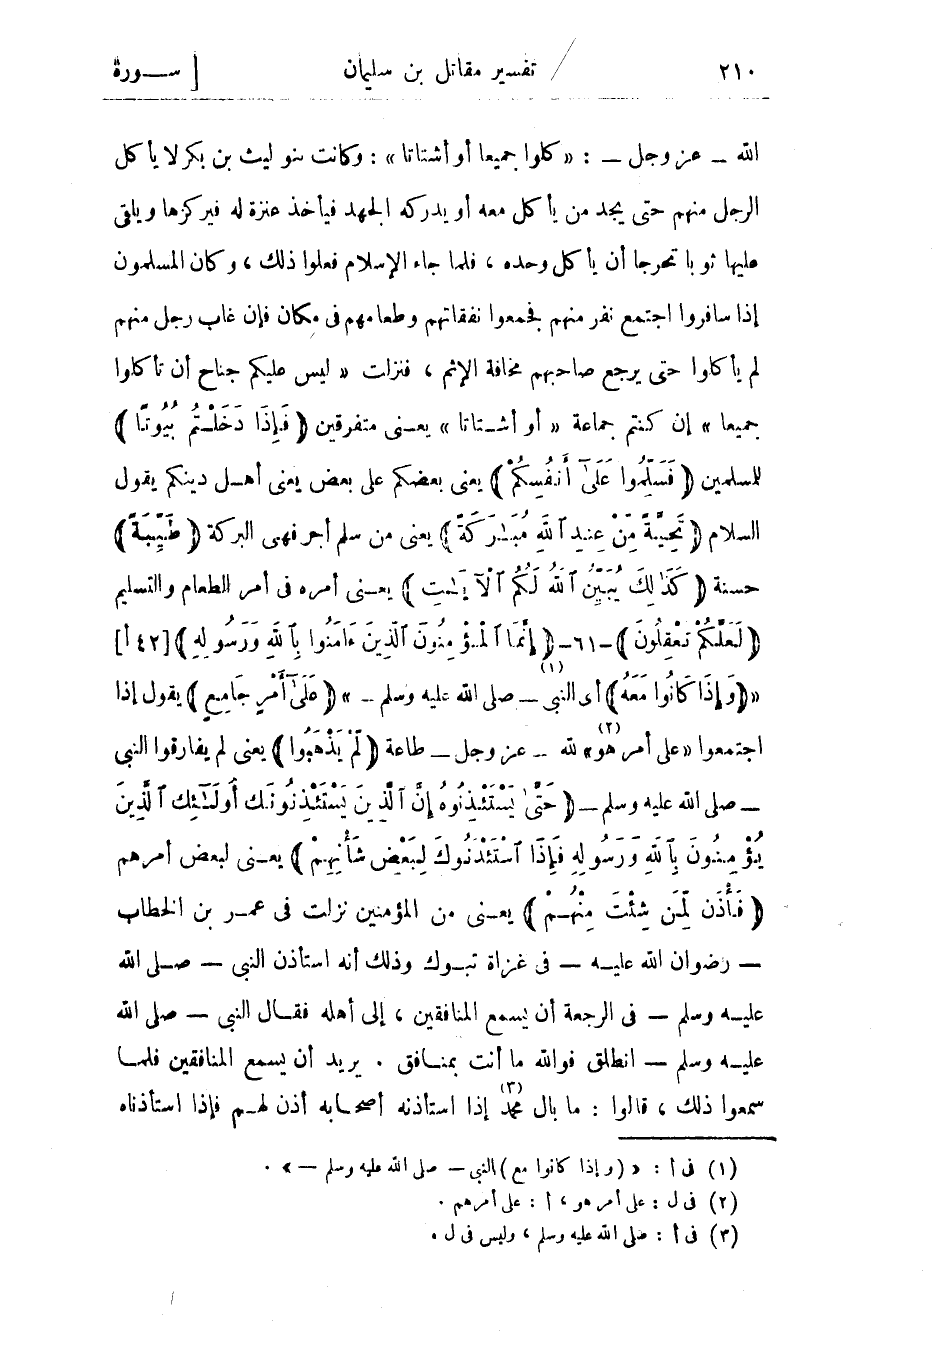 ٢١٠ تفسير مقاتل بن سليمان [ ســـورة
الله ــ عز وجل ــ : « كلوا جميعا أو أشتاتا » : وكانت بنو ليث بن بكر لا يأكل
الرجل منهم حتى يجد من يأكل معه أو يدركه الجهد فيأخذ عنزة له فيركزها ويلقى
عليها ثوبا تحرجا أن يأكل وحده ، فلما جاء الإسلام فعلوا ذلك ، وكان المسلمون
إذا سافروا اجتمع نفر منهم فجمعوا نفقاتهم وطعامهم فى مكان فإن غاب رجل منهم
لم يأكلوا حتى يرجع صاحبهم مخافة الإثم ، فنزلت « ليس عليكم جناح أن تأكلوا
جميعا » إن كنتم جماعة « أو أشــتاتا » يعــنى متفرقين ( فَإِذَا دَخَلْتُم بُيُوتًا )
للمسلمين ( فَسَلِّمُوا عَلَىٰٓ أَنفُسِكُمْ ) يعنى بعضكم على بعض يعنى أهــل دينكم يقول
السلام ( تَحِيَّةً مِّنْ عِندِ ٱللَّهِ مُبَـٰرَكَةً ) يعنى من سلم أجر فهى البركة ( طَيِّبَةً )
حسنة ( كَذَٰلِكَ يُبَيِّنُ ٱللَّهُ لَكُمُ ٱلْآيَـٰتِ ) يعــنى أمره فى أمر الطعام والتسليم
( لَعَلَّكُمْ تَعْقِلُونَ ) -٦١- ( إِنَّمَا ٱلْمُؤْمِنُونَ ٱلَّذِينَ ءَامَنُوا بِٱللَّهِ وَرَسُولِهِ ) [٤٢ أ]
«( وَإِذَا كَانُوا مَعَهُ ) أى النبى ــ صلى الله عليه وسلم ــ »(١) ( عَلَىٰٓ أَمْرٍ جَامِعٍ ) يقول إذا
اجتمعوا «على أمر هو»(٢) لله ــ عز وجل ــ طاعة ( لَّمْ يَذْهَبُوا ) يعنى لم يفارقوا النبى
ــ صلى الله عليه وسلم ــ ( حَتَّىٰ يَسْتَـْٔذِنُوهُ إِنَّ ٱلَّذِينَ يَسْتَـْٔذِنُونَكَ أُولَـٰٓئِكَ ٱلَّذِينَ
يُؤْمِنُونَ بِٱللَّهِ وَرَسُولِهِ فَإِذَا ٱسْتَـْٔذَنُوكَ لِبَعْضِ شَأْنِهِمْ ) يعــنى لبعض أمرهم
( فَأْذَن لِّمَن شِئْتَ مِنْهُمْ ) يعــنى من المؤمنين نزلت فى عمــر بن الخطاب
ــ رضوان الله عليــه ــ فى غزاة تبــوك وذلك أنه استأذن النبى ــ صــلى الله
عليــه وسلم ــ فى الرجعة أن يسمع المنافقين ، إلى أهله فقــال النبى ــ صلى الله
عليــه وسلم ــ انطلق فوالله ما أنت بمنــافق . يريد أن يسمع المنافقين فلمــا
سمعوا ذلك ، قالوا : ما بال محمد(٣) إذا استأذنه أصحــابه أذن لهــم فإذا استأذناه
(١) فى أ : « ( وإذا كانوا مع ) النبى ــ صلى الله عليه وسلم ــ » .
(٢) فى ل : على أمر هو ، أ : على أمرهم .
(٣) فى أ : صلى الله عليه وسلم ، وليس فى ل .